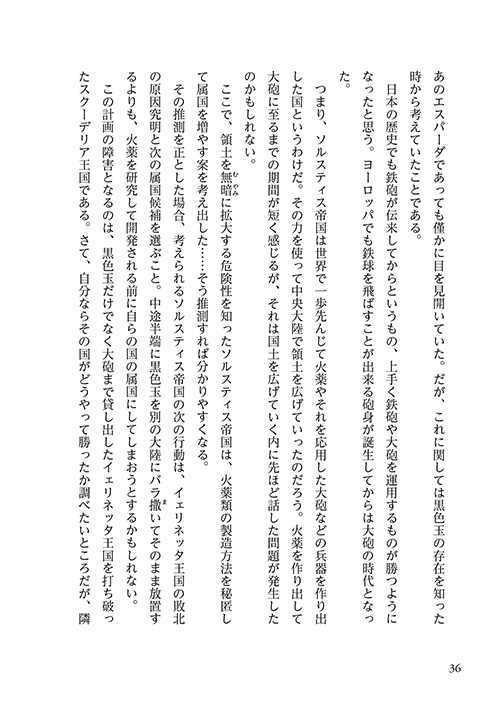 あのエスパーダであっても僅かに目を見開いていた。だが、これに関しては黒色玉の存在を知った
時から考えていたことである。
日本の歴史でも鉄砲が伝来してからというもの、上手く鉄砲や大砲を運用するものが勝つように
なったと思う。ヨーロッパでも鉄球を飛ばすことが出来る砲身が誕生してからは大砲の時代となっ
た。
つまり、ソルスティス帝国は世界で一歩先んじて火薬やそれを応用した大砲などの兵器を作り出
した国というわけだ。その力を使って中央大陸で領土を広げていったのだろう。火薬を作り出して
大砲に至るまでの期間が短く感じるが、それは国土を広げていく内に先ほど話した問題が発生した
のかもしれない。
ここで、領土を無暗に拡大する危険性を知ったソルスティス帝国は、火薬類の製造方法を秘匿し
て属国を増やす案を考え出した……そう推測すれば分かりやすくなる。
その推測を正とした場合、考えられるソルスティス帝国の次の行動は、イェリネッタ王国の敗北
の原因究明と次の属国候補を選ぶこと。中途半端に黒色玉を別の大陸にバラ撒いてそのまま放置す
るよりも、火薬を研究して開発される前に自らの国の属国にしてしまおうとするかもしれない。
この計画の障害となるのは、黒色玉だけでなく大砲まで貸し出したイェリネッタ王国を打ち破っ
たスクーデリア王国である。さて、自分ならその国がどうやって勝ったか調べたいところだが、隣
36